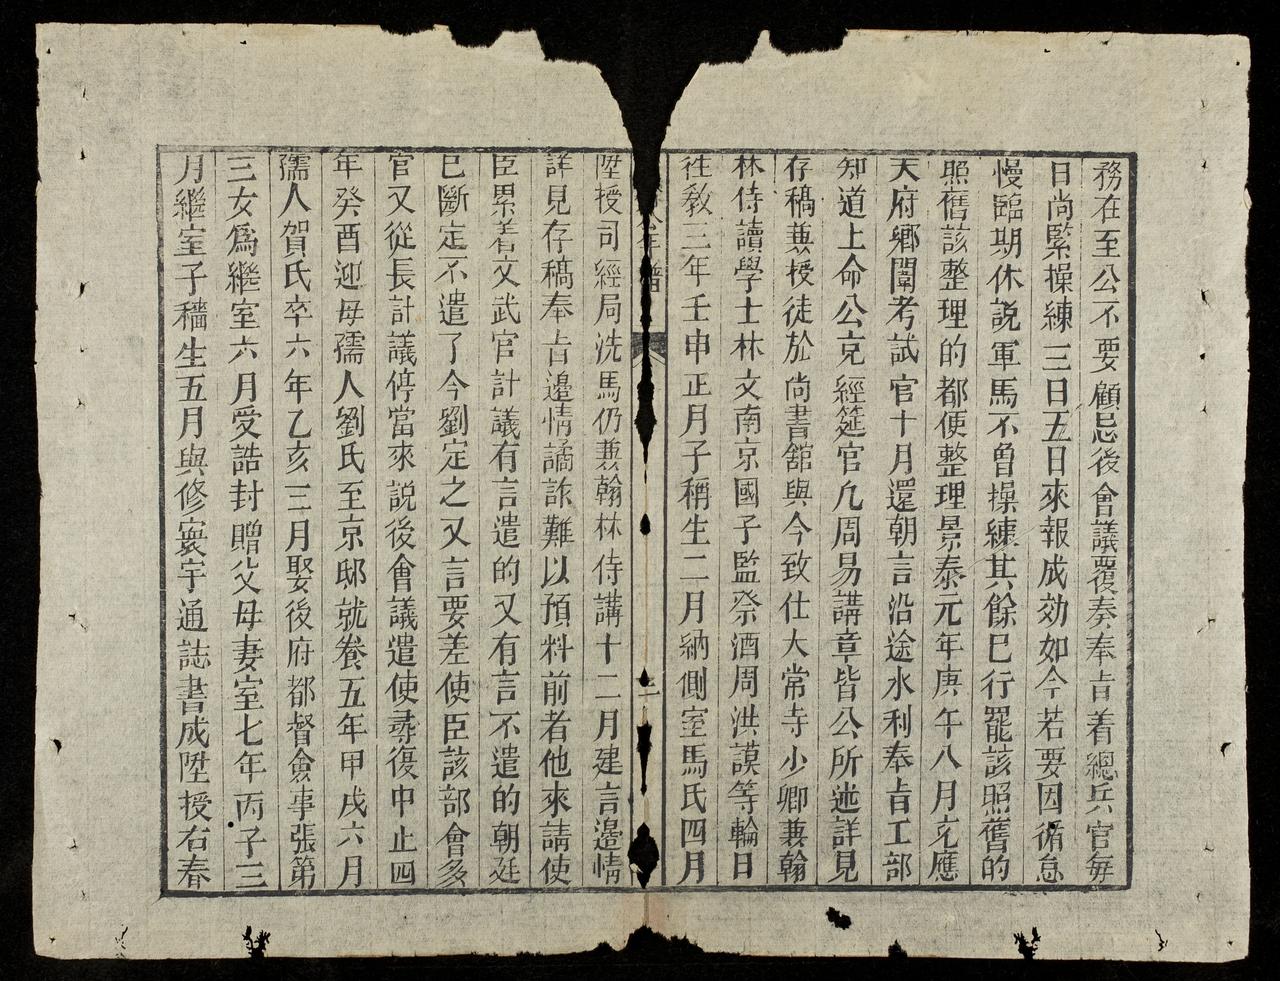 務在至公不要顧忌後會議覆奏奉㫖着總兵官每
日尚緊操練三日五日來報成効如今若要因循怠
慢臨期休説軍馬不魯操練其餘巳行罷該照舊的
照舊該整理的都便整理景泰元年庚午八月充應
天府鄉闈考試官十月還朝言沿途水利奉㫖工部
知道上命公充經筵官凢周易講章皆公所述詳見
存稿兼授徒於尚書舘與今致仕大常寺少卿兼翰
林侍讀學士林文南京國子監祭酒周洪謨等輪日
徃教三年壬申正月子稱生二月納側室馬氏四月
公年譜
二
陞授司經局洗馬仍兼翰林侍講十二月建言邉情
詳見存稿奉㫖邉情譎詐難以預料前者他來請使
臣累着文武官計議有言遣的又有言不遣的朝廷
巳斷定不遣了今劉定之又言要差使臣該部會多
官又從長計議停當來説後會議遣使尋復中止四
年癸酉迎母孺人劉氏至京邸就養五年甲戌六月
孺人賀氏卒六年乙亥三月娶後府都督僉事張第
三女爲繼室六月受誥封贈父母妻室七年丙子三
月繼室子穡生五月與修寰宇通誌書成陞授右春